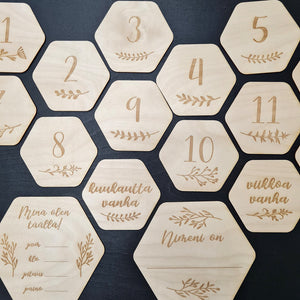 1
3
5
2
4
7
9
11
8
10
kuukautta
vanha
viikkoa
vanha
Minä olen
täällä!
Nimeni on
pvm
klo
pituus
paino